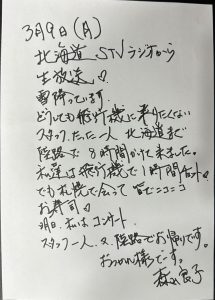 3月9日(月)
北海道 STVラジオから
生放送♡
雪降っています。
どうしても飛行機に乗りたくない
スタッフ、たった一人 北海道まで
陸路で 8時間かけて来ました。
私達は飛行機で1時間ちょっと♡
でも札幌で会って 皆でニコニコ
お寿司♡
明日、私はコンサート
スタッフ一人、又、陸路でお帰りです。
おつかれ様でーす。
森山良子